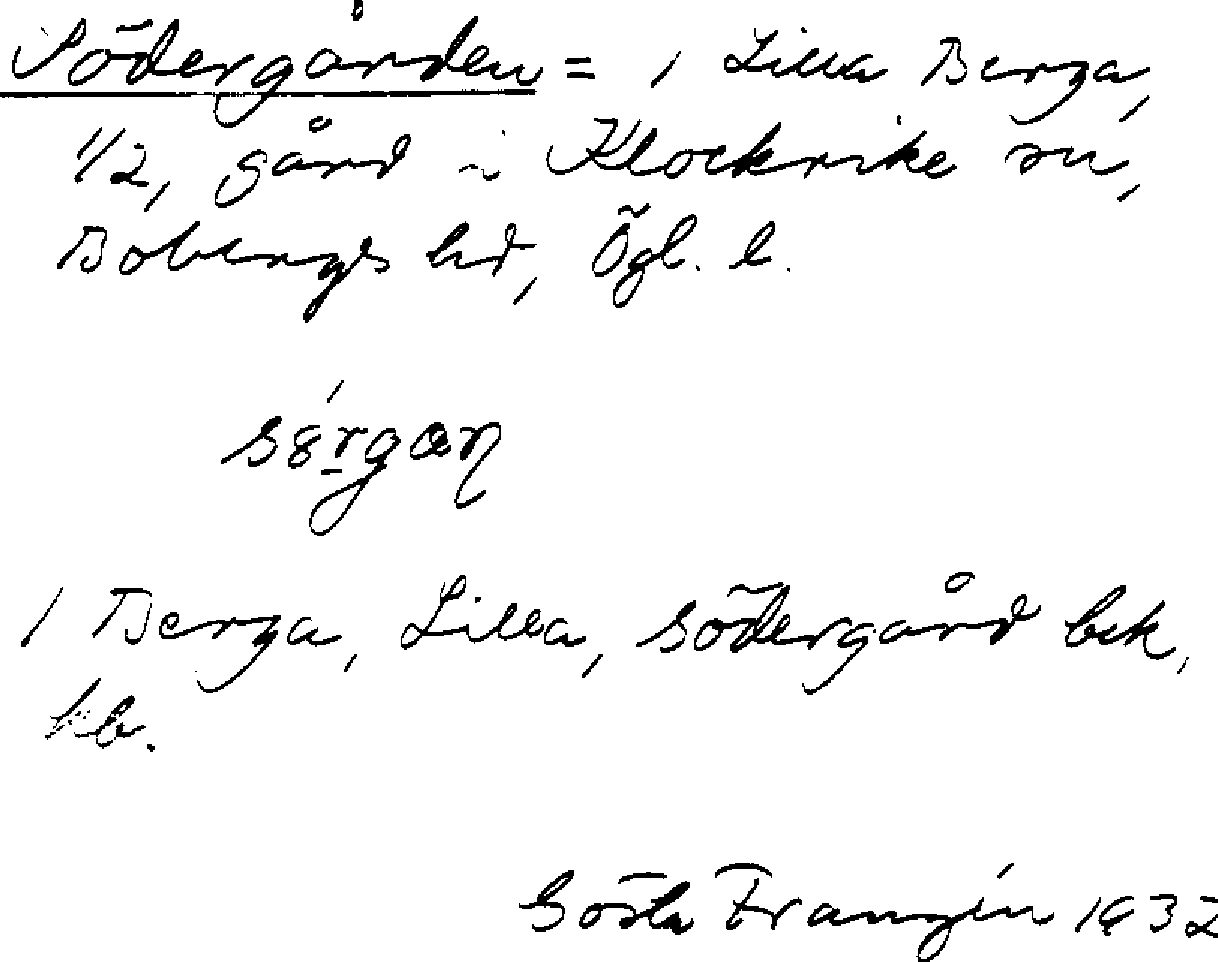 Södergården = 1 Lilla Berga,
1/2, gård i Klockrike sn,
Bobergs hd, Ögl. l.
1 Berga, Lilla, Södergård bek,
kb.
Gösta Franzén 1932